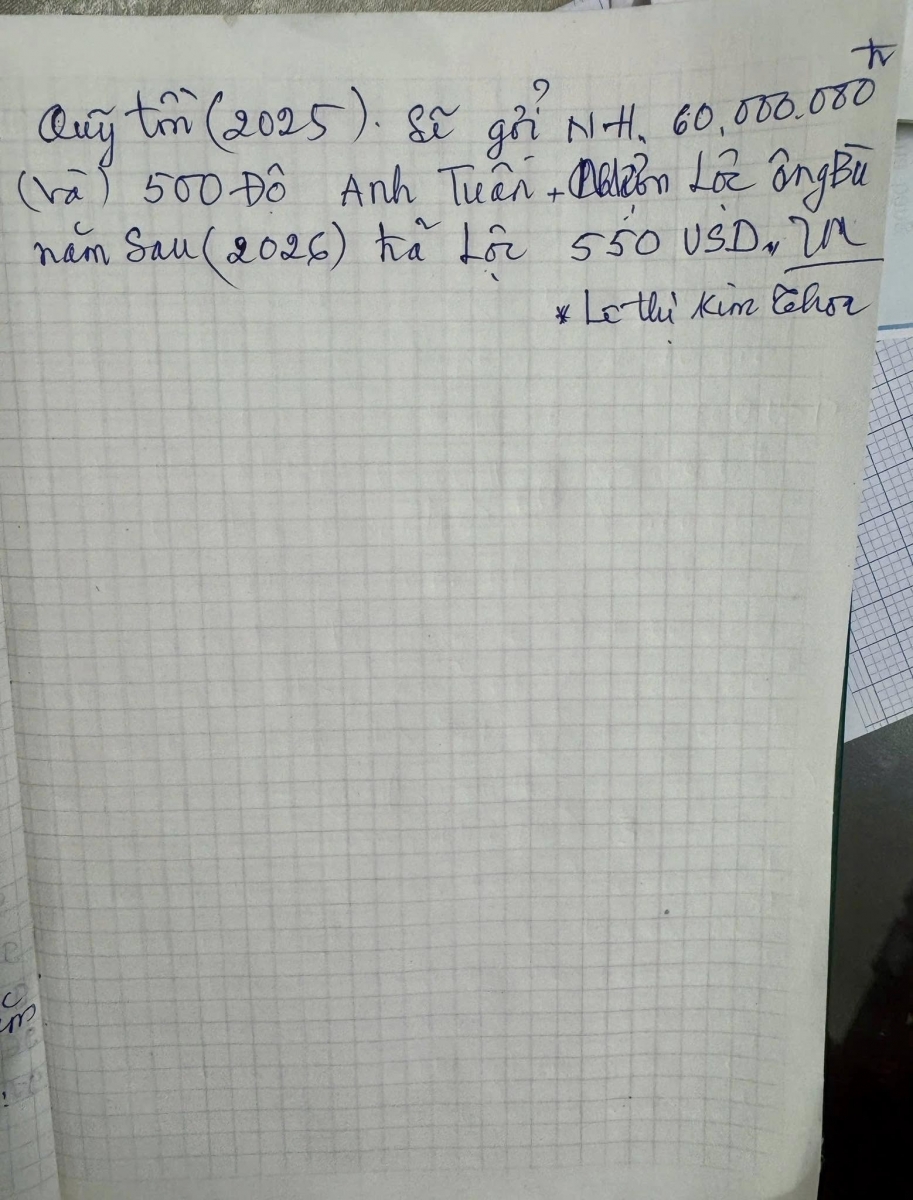 tr
Quỹ tồn (2025). Sẽ gởi N.H. 60.000.000
(Và) 500 Đô Anh Tuấn + Lộc ông Bù
năm Sau (2026) trả Lộc 550 USD
* Lê thị Kim